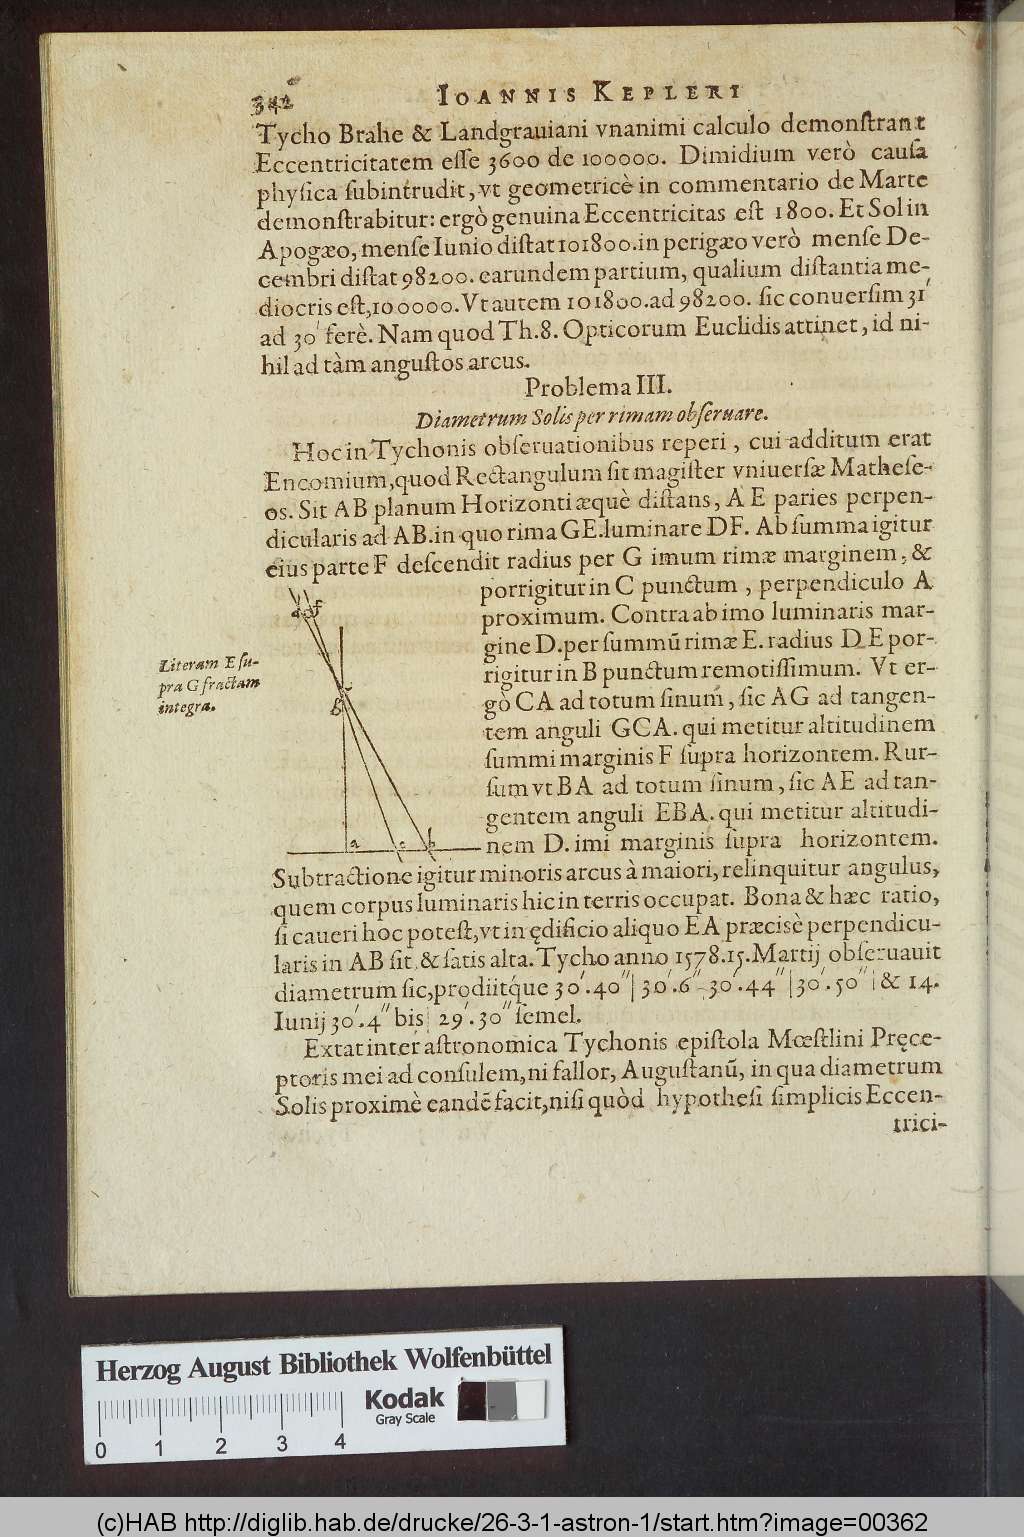 342
IOANNIS KEPLERI
Tycho Brahe & Landgrauiani vnanimi calculo demonſtrant
Eccentricitatem eſſe 3600 de 100000. Dimidium verò cauſa
phyſica ſubintrudit, vt geometricè in commentario de Marte
demonſtrabitur: ergò genuina Eccentricitas eſt 1800. Et Sol in
Apogæo, menſe Iunio diſtat 101800. in perigæo verò menſe De-
cembri diſtat 98200. earundem partium, qualium diſtantia me-
diocris eſt, 100000. Vt autem 101800. ad 98200. ſic conuerſim 31′
ad 30′ ferè. Nam quod Th. 8. Opticorum Euclidis attinet, id ni-
hil ad tàm anguſtos arcus.
Problema III.
Diametrum Solis per rimam obſeruare.
Hoc in Tychonis obſeruationibus reperi, cui additum erat
Encomium, quod Rectangulum ſit magiſter vniuerſæ Matheſe-
os. Sit AB planum Horizonti æquè diſtans, AE paries perpen-
dicularis ad AB. in quo rima GE. luminare DF. Ab ſumma igitur
eius parte F deſcendit radius per G imum rimæ marginem, &
porrigitur in C punctum, perpendiculo A
proximum. Contra ab imo luminaris mar-
gine D. per ſummū rimæ E. radius DE por-
rigitur in B punctum remotiſſimum. Vt er-
gò CA ad totum ſinum, ſic AG ad tangen-
tem anguli GCA. qui metitur altitudinem
ſummi marginis F ſupra horizontem. Rur-
ſum vt BA ad totum ſinum, ſic AE ad tan-
gentem anguli EBA. qui metitur altitudi-
nem D. imi marginis ſupra horizontem.
Literam E ſu-
pra G fractam
integra.
d f
g
a c b
Subtractione igitur minoris arcus à maiori, relinquitur angulus,
quem corpus luminaris hic in terris occupat. Bona & hæc ratio,
ſi caueri hoc poteſt, vt in ędificio aliquo EA præcisè perpendicu-
laris in AB ſit, & ſatis alta. Tycho anno 1578. 15. Martij obſeruauit
diametrum ſic, prodiitq́ue 30′. 40″ | 30′. 6″ 30′. 44″ | 30′. 50″ | & 14.
Iunij 30′. 4″ bis | 29′. 30″ ſemel.
Extat inter aſtronomica Tychonis epiſtola Mœſtlini Pręce-
ptoris mei ad conſulem, ni fallor, Auguſtanū, in qua diametrum
Solis proximè eandē facit, niſi quòd hypotheſi ſimplicis Eccen-
trici-
Herzog August Bibliothek Wolfenbüttel
Kodak
Gray Scale
0 1 2 3 4
(c)HAB http://diglib.hab.de/drucke/26-3-1-astron-1/start.htm?image=00362